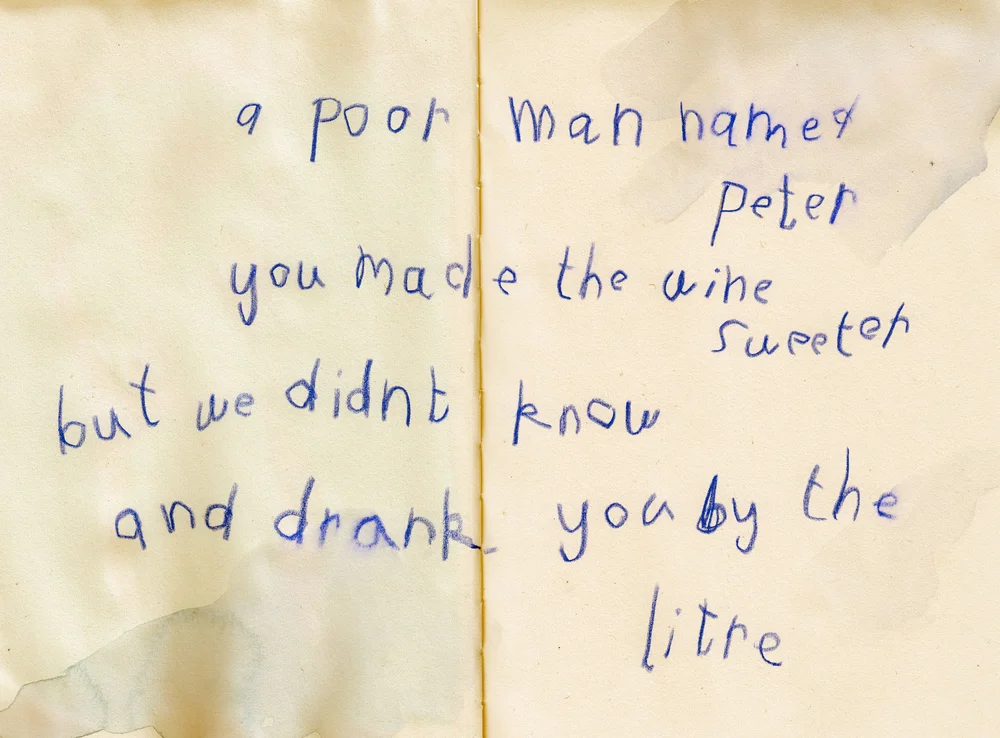 a poor man named
peter
you made the wine
sweeter
but we didnt know
and drank you by the
litre